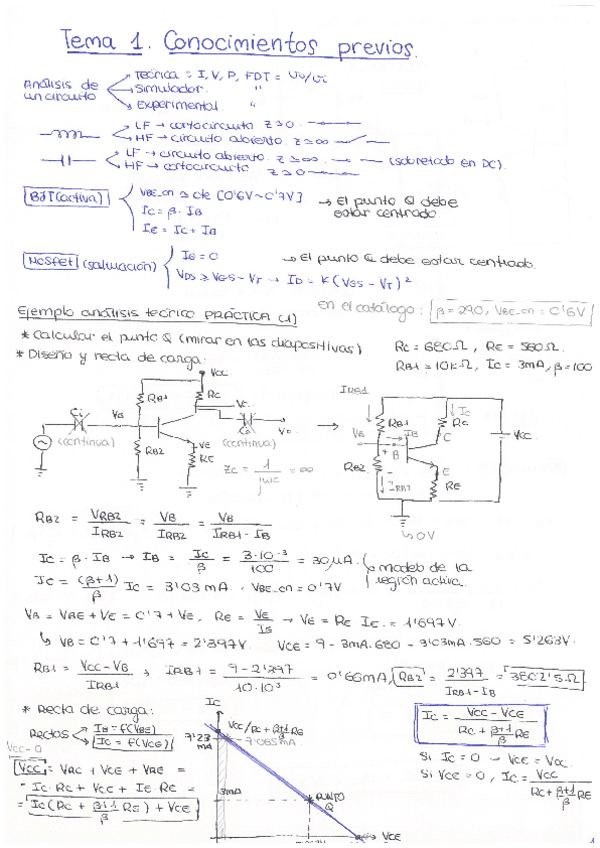 Tema 1. Conocimientos previos.
Análisis de un circuito
Teórica: I, V, P, FDT = Vo/Vi
Simulador. "
Experimental. "
LF → cortocircuito Z≃0
HF → circuito abierto. Z≃∞
LF → circuito abierto. Z≃∞
HF → cortocircuito Z≃0
(sobretodo en DC).
BJT (activa)
VBE_on ≃ de [0'6V ~ 0'7V]
IC = β · IB
IE = IC + IB
→ El punto Q debe estar centrado
Mosfet (saturación)
IG = 0
VDS ≥ VGS - VT → ID = K (VGS - VT)²
→ El punto Q debe estar centrado.
Ejemplo análisis teórico PRÁCTICA (1)
en el catálogo: β = 290, VBE_on = 0'6V
* Calcular el punto Q (mirar en las diapositivas)
RC = 680Ω, RE = 560Ω.
* Diseño y recta de carga:
RB1 = 10kΩ, IC = 3mA, β = 100
VCC
RB1
RC
Ci
VB
VC
Co
Vo
(continua)
RB2
VE
RE
(continua)
ZC = 1/jωC = ∞
IRB1
RB1
IC
RC
VB
IB
C
B
VCC
RB2
E
IRB2
RE
↳ 0V
RB2 = VRB2/IRB2 = VB/IRB2 = VB/(IRB1 - IB)
IC = β · IB → IB = IC/β = 3·10⁻³/100 = 30µA.
IE = (β+1)/β IC = 3'03 mA. VBE_on = 0'7V
modelo de la región activa.
VB = VBE + VE = 0'7 + VE, RE = VE/IE → VE = RE IE = 1'697 V.
↳ VB = 0'7 + 1'697 = 2'397V. VCE = 9 - 3mA·680 - 3'03mA·560 = 5'263V.
RB1 = (VCC - VB)/IRB1, IRB1 = (9 - 2'397)/10·10³ = 0'66mA, RB2 = 2'397/(IRB1 - IB) = 3802'5Ω
* Recta de carga:
Rectas
IB = f(VBE)
IC = f(VCE)
VCC = VRC + VCE + VRE =
= IC · RC + VCE + IE RE =
= IC (RC + (β+1)/β RE) + VCE
IC
7'23 mA
VCC/RC + (β+1)/β RE
7'065mA
3mA
PUNTO Q
VCE
IC = (VCC - VCE)/(RC + (β+1)/β RE)
Si IC = 0 → VCE = VCC.
Si VCE = 0, IC = VCC/(RC + (β+1)/β RE)